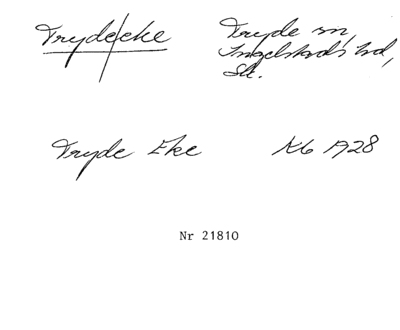 Trydeeke
Tryde sn,
Ingelstads hd,
Sk.
Tryde Eke
Kb 1928
Nr 21810